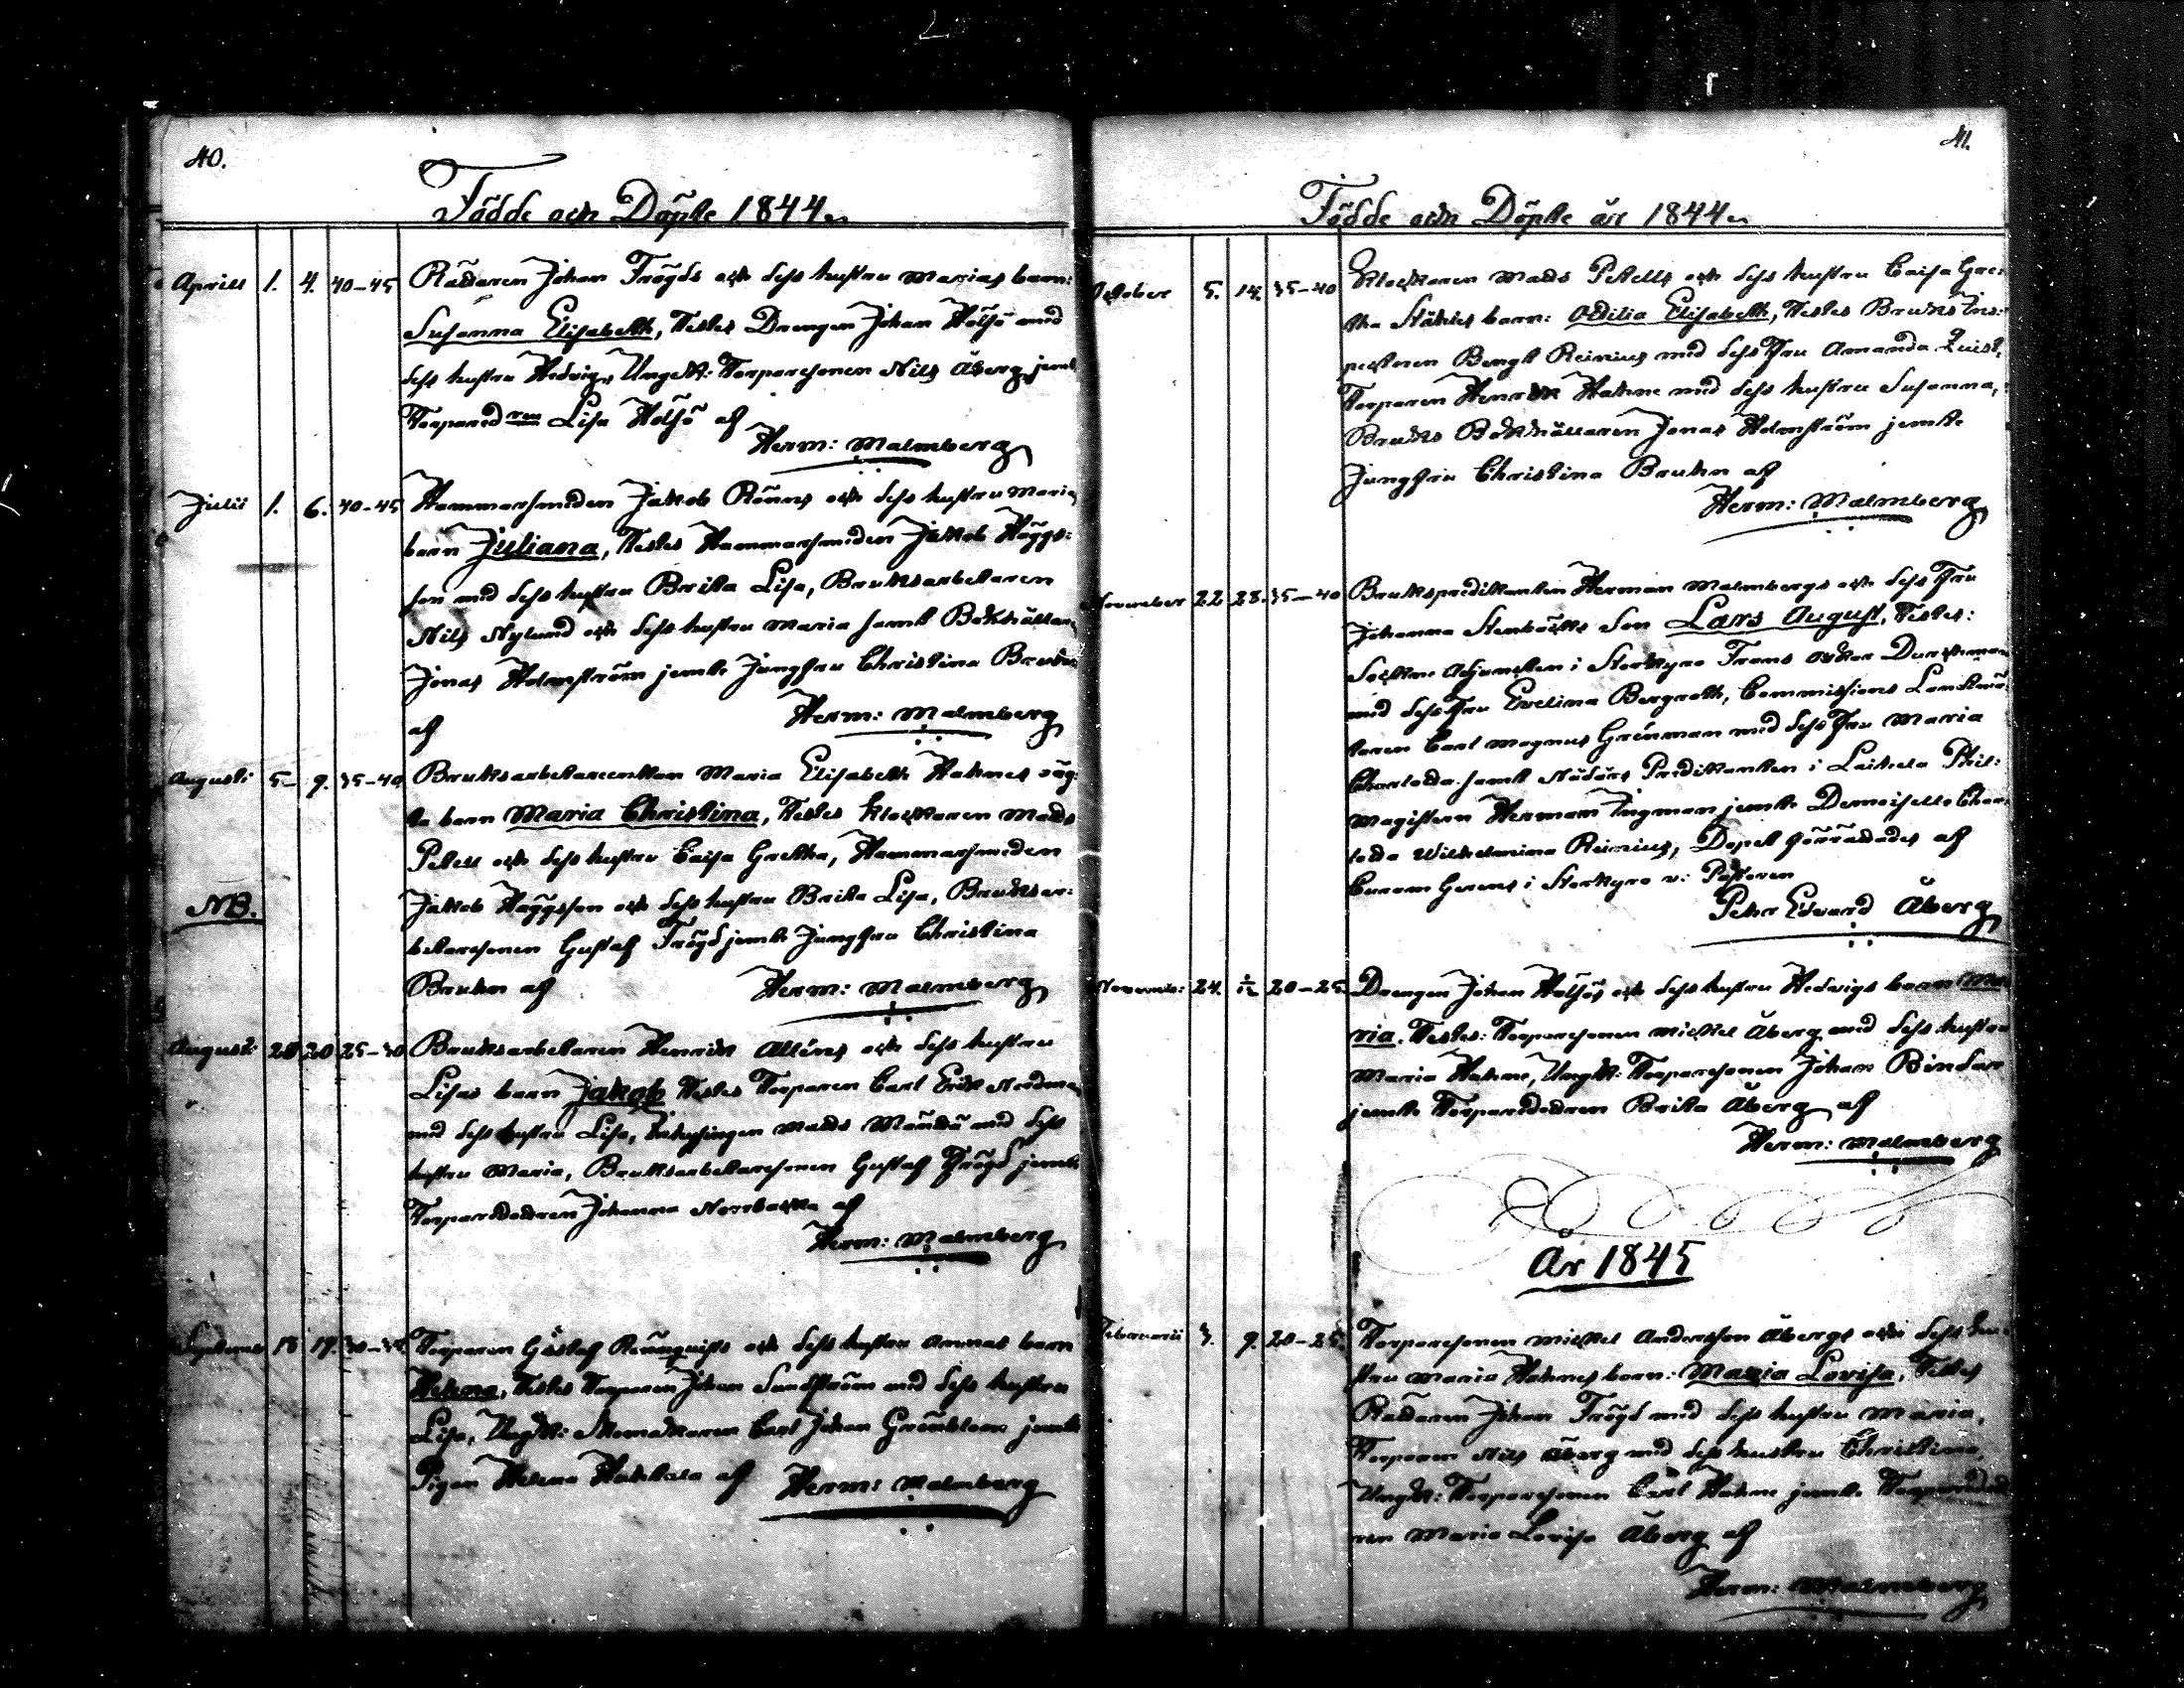 40.
Födde och Döpte 1844.
Aprill 1. 4. 40-45 Rättaren Johan Trögds och dess hustru Marias barn:
Susanna Elisabeth, Testes Drengen Johan Holsö med
dess hustru Hedvig, Ungkt: Torparesonen Nils Åberg jemte
Torpared:ren Lisa Holsö af
Herm: Malmberg
Julii 1. 6. 40-45 Hammarsmeden Jakob Rönns och dess hustru Maria
barn Juliana, Testes Hammarsmeden Jakob Häggs:
son med dess hustru Brita Lisa, Bruksarbetaren
Nils Nylund och dess hustru Maria samt Bokhållaren
Jonas Holmström jemte Jungfru Christina Bruhn
af Herm: Malmberg
Augusti 5- 9. 35-40 Bruksarbetareenkan Maria Elisabeth Hahnes oäg:
ta barn Maria Christina, Testes Klockaren Matts
Petell och dess hustru Caisa Gretha, Hammarsmeden
NB. Jakob Häggsson och dess hustru Brita Lisa, Bruksar:
betaresonen Gustaf Trögd jemte Jungfru Christina
Bruhn af Herm: Malmberg
Augusti 20 20 25-30 Bruksarbetaren Henrik Alléns och dess hustru
Lisas barn Jakob Testes Torparen Carl Erik Nordman
med dess hustru Lisa, Inhysingen Matts Mäntä med dess
hustru Maria, Bruksarbetaresonen Gustaf Trögd jemte
Torparedottren Johanna Norrbacka af
Herm: Malmberg
September 15 17. Torparen Göstaf Renqvists och dess hustru Annas barn
Helena, Testes Torparen Johan Sundström med dess hustru
Lisa, Ungkt: Skomakaren Carl Johan Grönblom jemte
Pigan Helena Hakkala af Herm: Malmberg
41.
Födde och Döpte år 1844.
October 5. 14. 35-40 Klockaren Matts Petells och dess hustru Caisa Gre:
tha Ståhles barn: Otilia Elisabeth, Testes Bruks Ins:
pectoren Bengt Reinius med dess Fru Amanda Quist,
Torparen Henrik Hahne med dess hustru Susanna,
Bruks Bokhållaren Jonas Holmström jemte
Jungfru Christina Bruhn af
Herm: Malmberg
November 22 28. 35-40 Brukspredikanten Herman Malmbergs och dess Fru
Johanna Stenbäcks Son Lars August, Testes:
Sockne Adjuncten i Storkyro Frans Oskar Durchman
med dess Fru Evelina Bergroth, Commissions Landtmä:
taren Carl Magnus Grönman med dess Fru Maria
Charlotta samt Nådårs Predikanten i Laihela Phil:
Magistern Herman Ingman jemte Demoiselle Char:
lotta Wilhelmina Reinius, Dopet förrättades af
Curam Gerens i Storkyro v: Pastoren
Petter Edvard Åberg
November: 24. 1/12 20-25. Drengen Johan Holsös och dess hustru Hedvigs barn Ma:
ria. Testes: Torparesonen Mickel Åberg med dess hustru
Maria Hahne, Ungkt: Torparesonen Johan Bindar
jemte Torparedottren Brita Åberg af
Herm: Malmberg
År 1845
Februarii 3. 9. 20-25. Torparesonen Mickel Andersson Åbergs och dess hu:
stru Maria Hahnes barn: Maria Lovisa, Testes
Rättaren Johan Trögd med dess hustru Maria,
Torparen Nils Åberg med dess hustru Christina,
Ungkt: Torparesonen Carl Hahne jemte Torparedott:
ren Maria Lovisa Åberg af
Herm: Malmberg